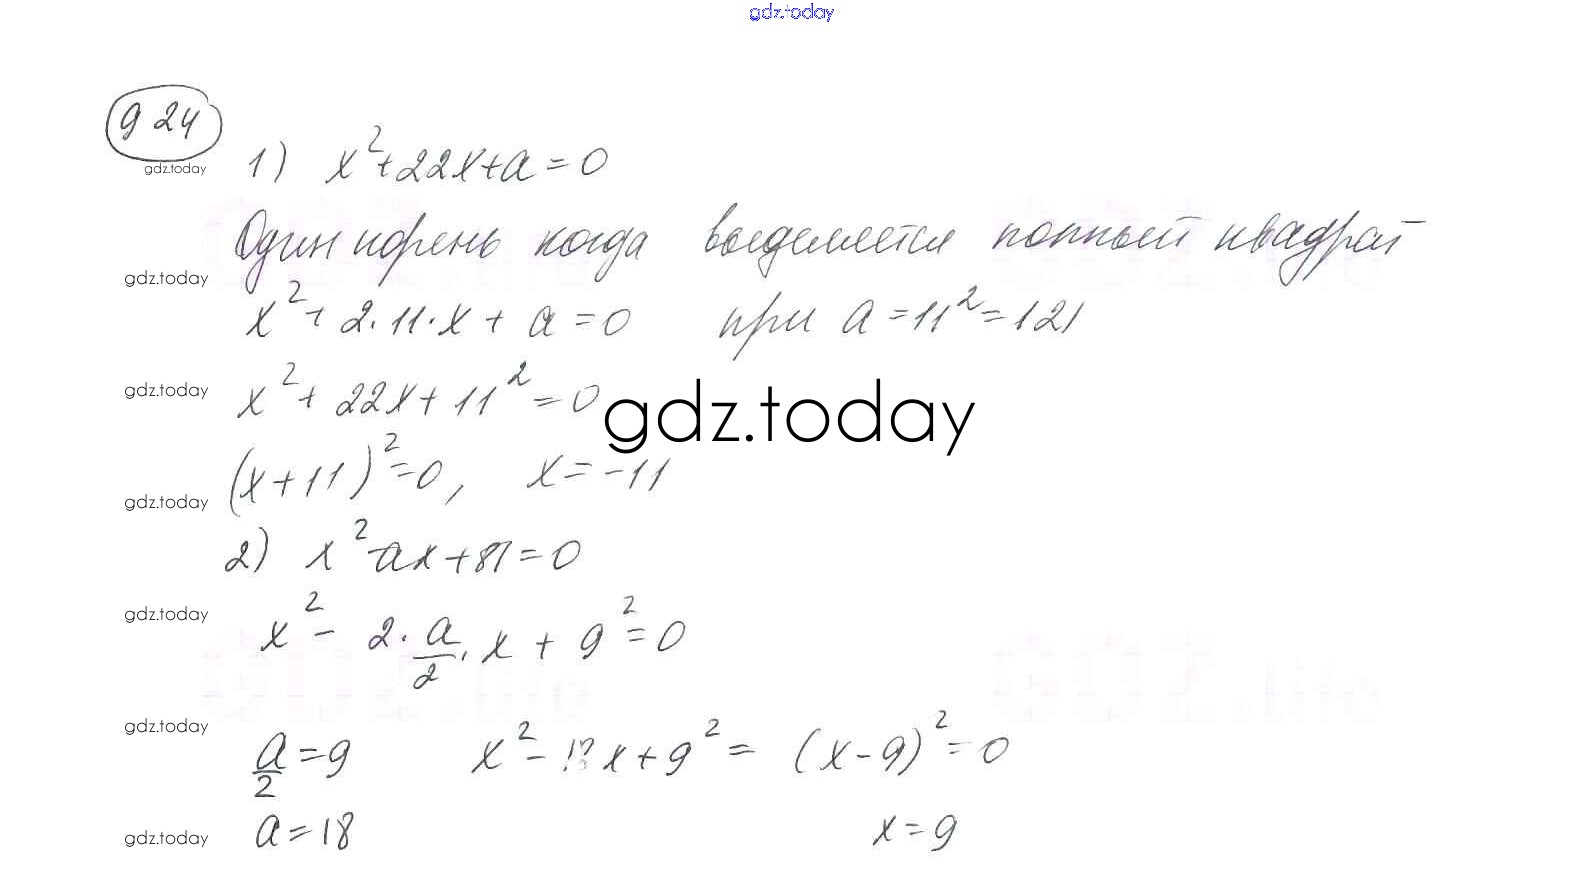 gdz.today
924
gdz.today
1) x²+22x+a=0
Один корень когда выделяется полный квадрат
gdz.today
x²+2·11·x+a=0 при a=11²=121
gdz.today
x²+22x+11²=0
gdz.today
(x+11)²=0, x=-11
gdz.today
2) x²-ax+81=0
gdz.today
x²-2·a/2·x+9²=0
gdz.today
a/2=9 x²-18x+9²=(x-9)²=0
gdz.today
a=18 x=9